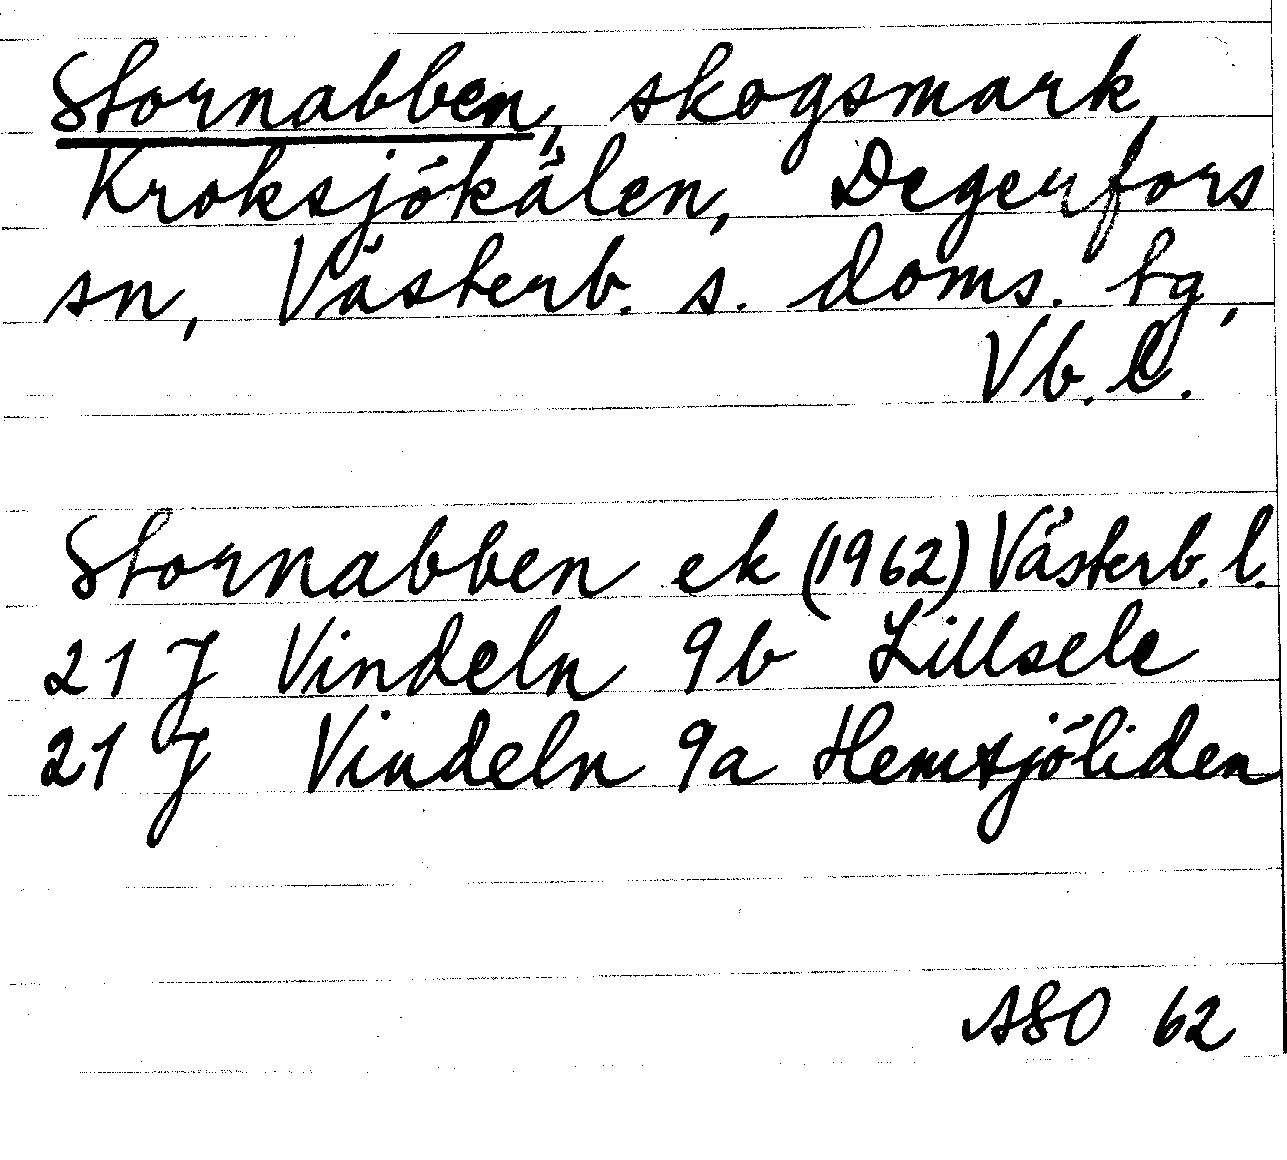 Stornabben, skogsmark,
Kroksjökälen, Degerfors
sn, Västerb. s. doms. tg,
Vb. l.
Stornabben ek (1962) Västerb. l.
21 J Vindeln 9b Lillsele
21 J Vindeln 9a Hemsjöliden
ASO 62